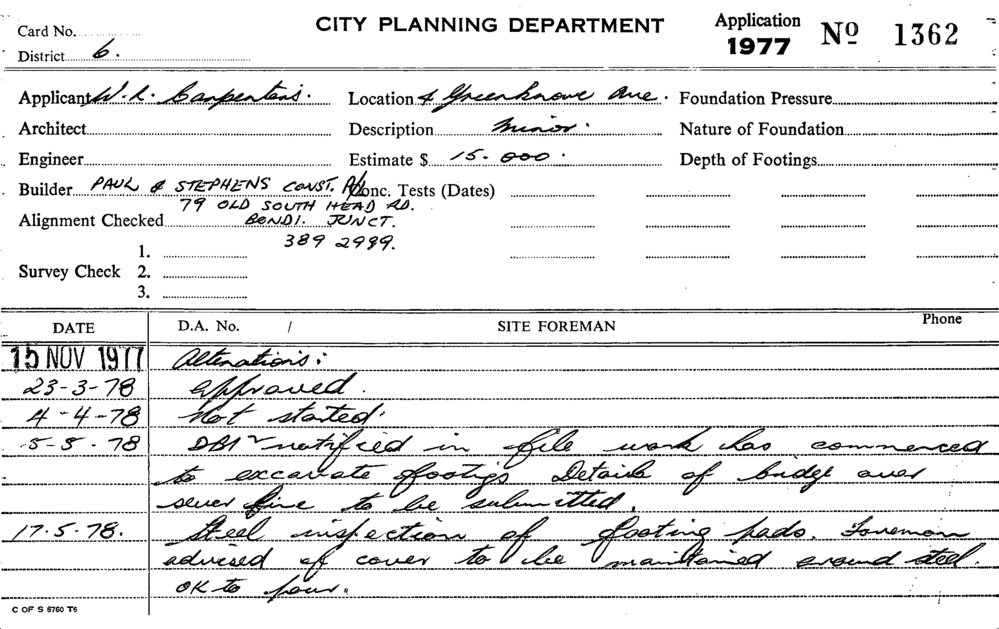 CITY PLANNING DEPARTMENT
Application
1977 Nº 1362
Card No.
District 6.
Applicant W. R. Carpenters. Location 4 Greenknowe Ave. Foundation Pressure
Architect Description Minor. Nature of Foundation
Engineer Estimate $ 15.000. Depth of Footings
Builder PAUL & STEPHENS CONST. P/L Conc. Tests (Dates)
79 OLD SOUTH HEAD RD.
Alignment Checked BONDI. JUNCT.
389 2999.
1.
Survey Check 2.
3.
DATE D.A. No. / SITE FOREMAN Phone
15 NOV 1977 Alterations:
23-3-78 Approved.
4-4-78 Not started.
5-5-78 notified in file work has commenced
to excavate footigs Details of bridge over
sewer line to be submitted.
17.5.78. Steel inspection of footing pads. Foreman
advised of cover to be maintained around steel.
OK to pour.
C OF S 6760 T6